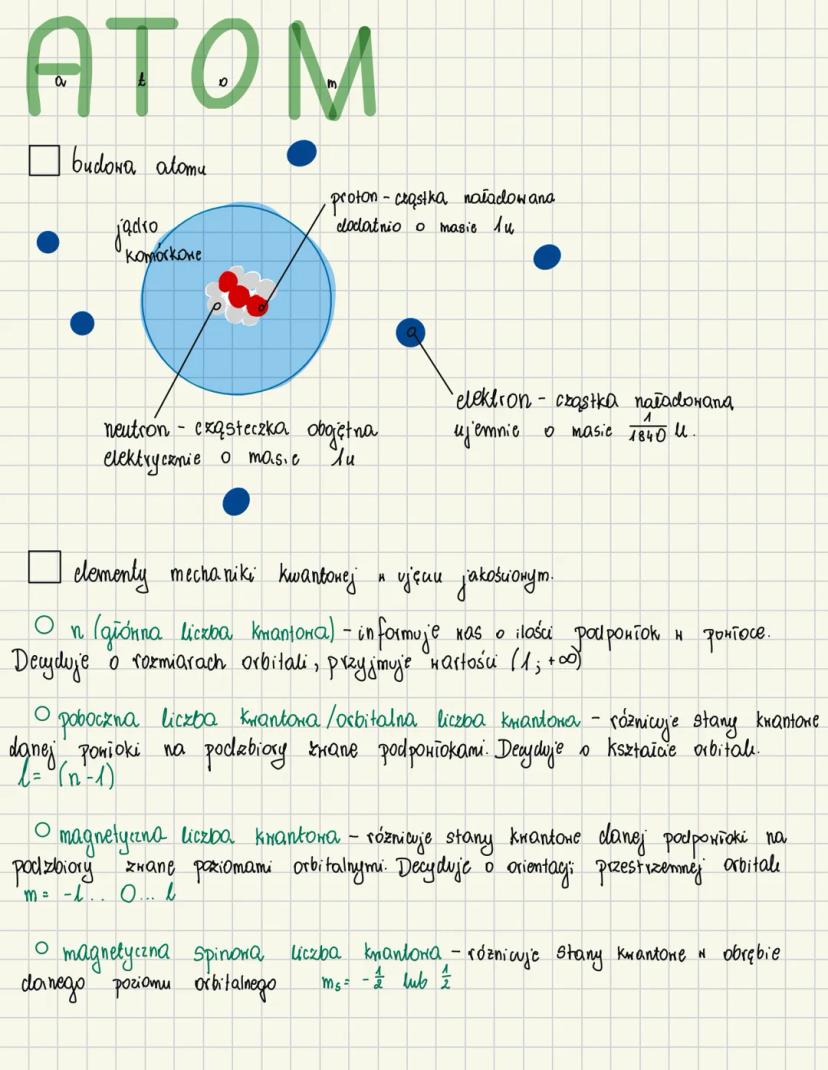 ATOM
a t o m
budowa atomu
jądro
komórkowe
proton - cząstka naładowana
dodatnio o masie 1u
elektron - cząstka naładowana
ujemnie o masie 1/1840 u.
neutron - cząsteczka obojętna
elektrycznie o masie 1u
elementy mechaniki kwantowej w ujęciu jakościowym.
n (główna liczba kwantowa) - informuje nas o ilości podpowłok w powłoce.
Decyduje o rozmiarach orbitali, przyjmuje wartości (1; +∞)
poboczna liczba kwantowa/orbitalna liczba kwantowa - różnicuje stany kwantowe
danej powłoki na podzbiory zwane podpowłokami. Decyduje o kształcie orbitali.
l = (n-1)
magnetyczna liczba kwantowa - różnicuje stany kwantowe danej podpowłoki na
podzbiory zwane poziomami orbitalnymi. Decyduje o orientacji przestrzennej orbitali
m = -l... 0... l
magnetyczna spinowa liczba kwantowa - różnicuje stany kwantowe w obrębie
danego poziomu orbitalnego ms = -1/2 lub 1/2